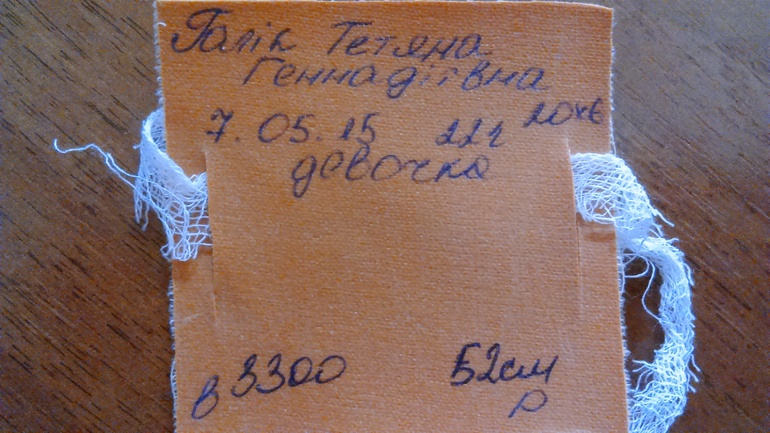 Галік Тетяна
Геннадіївна
7.05.15 22ч 20хв
девочка
в 3300 52см
р